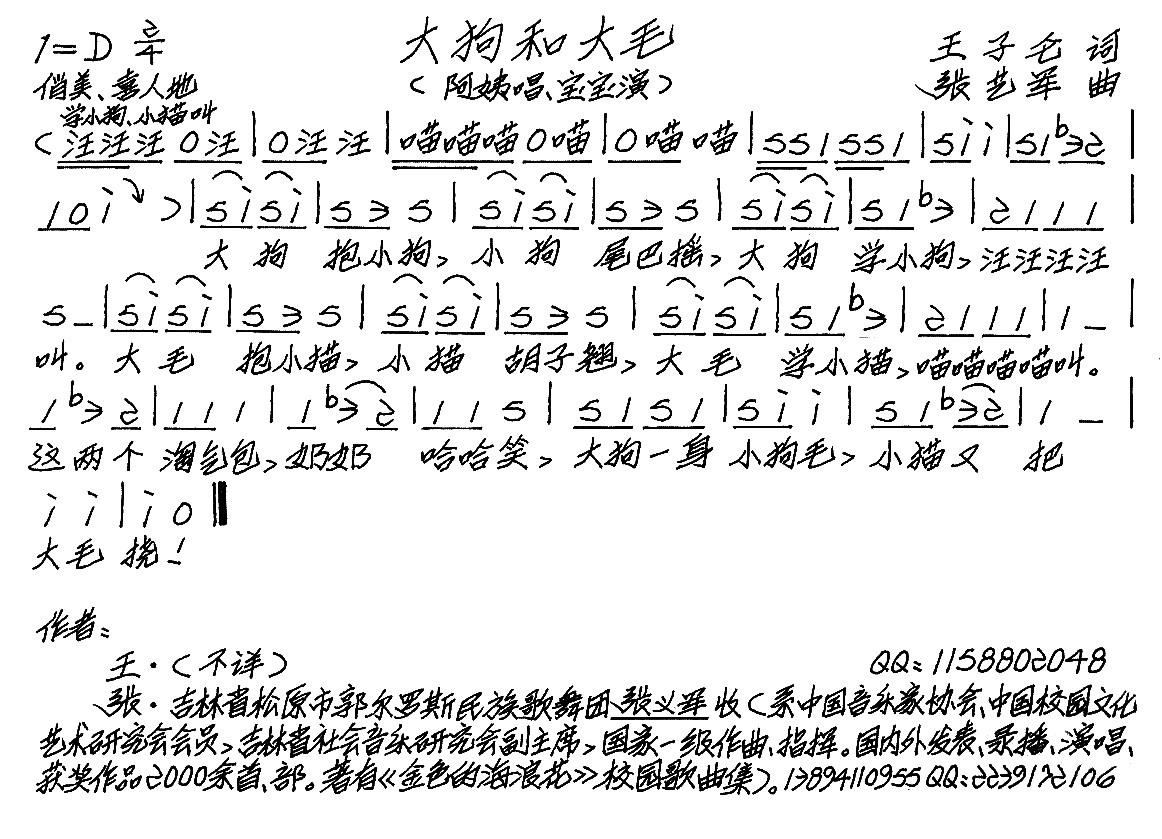 1=D 2/4 大狗和大毛 王子仑 词
俏美、喜人地 (阿姨唱、宝宝演) 张艺军 曲
学小狗、小猫叫
(汪汪汪 0汪|0汪 汪|喵喵喵0喵|0喵 喵|551 551|5i i|51 b32|
10 i ↘)|5i 5i|53 5|5i 5i|53 5|5i 5i|51 b3|21 11|
大 狗 抱小狗, 小 狗 尾巴摇, 大 狗 学小狗, 汪汪汪汪
5–|5i 5i|53 5|5i 5i|53 5|5i 5i|51 b3|21 11|1 –|
叫。 大 毛 抱小猫, 小 猫 胡子翘, 大 毛 学小猫, 喵喵喵喵叫。
1 b3 2|11 1|1 b3 2|11 5|51 51|5i i|51 b32|1 –|
这两个 淘气包, 奶奶 哈哈笑, 大狗一身 小狗毛, 小猫又 把
i i|i 0‖
大毛 挠!
作者:
王·(不详) QQ:1158802048
张·吉林省松原市郭尔罗斯民族歌舞团张义军收(系中国音乐家协会、中国校园文化
艺术研究会会员,吉林省社会音乐研究会副主席,国家一级作曲、指挥。国内外发表、录播、演唱、
获奖作品2000余首、部。著有《金色的海浪花》校园歌曲集)。13894110955QQ:2239172106